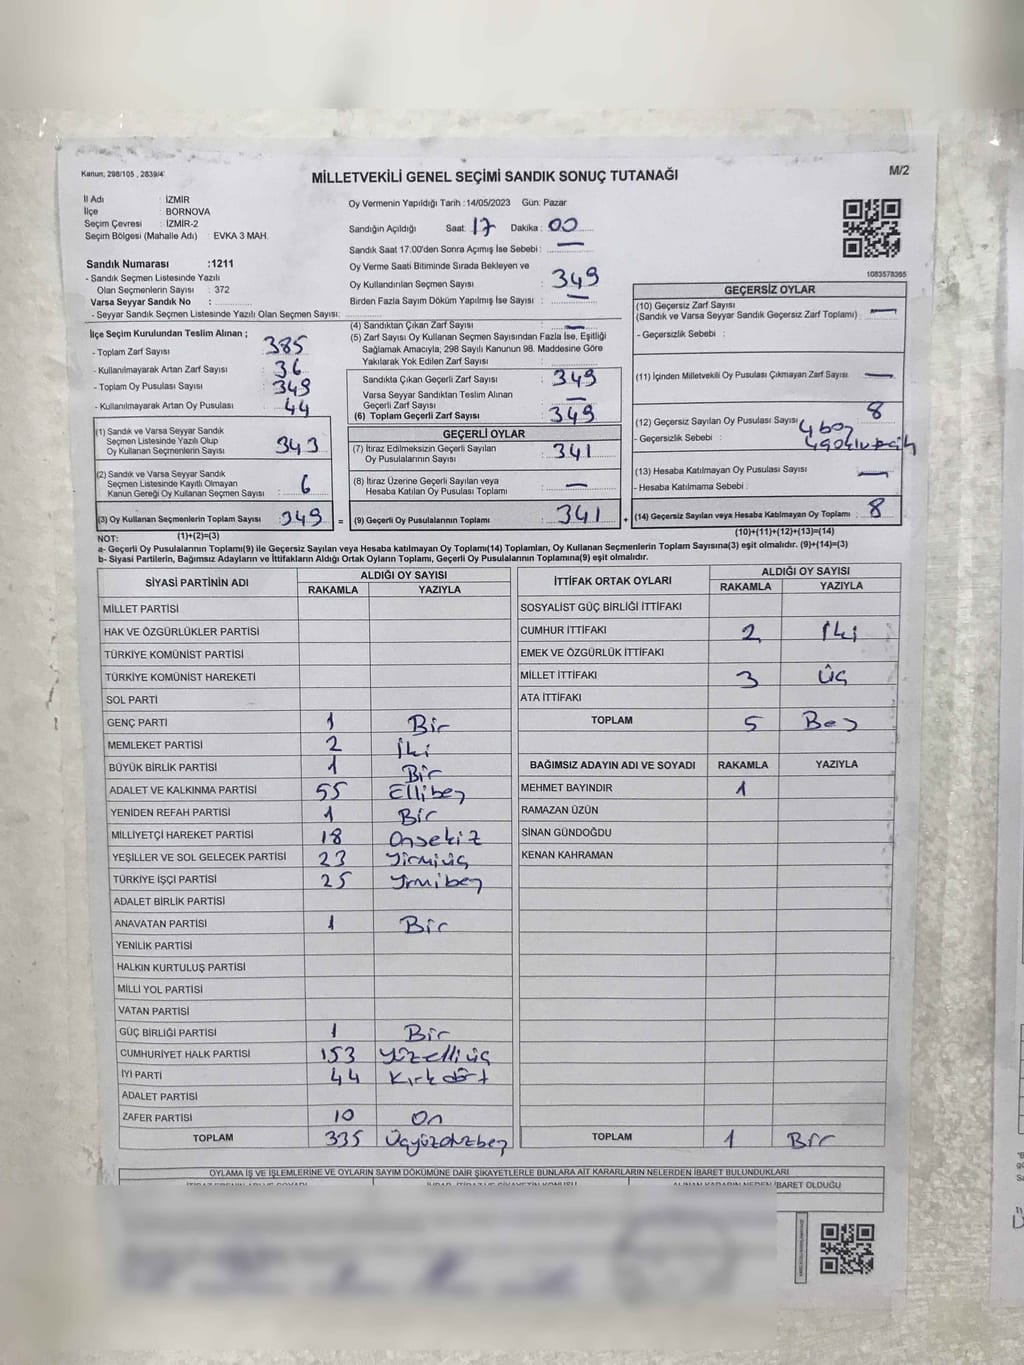 Kanun, 298/105 , 2839/4
M/2
MİLLETVEKİLİ GENEL SEÇİMİ SANDIK SONUÇ TUTANAĞI
İl Adı : İZMİR
İlçe : BORNOVA
Seçim Çevresi : İZMİR-2
Seçim Bölgesi (Mahalle Adı) : EVKA 3 MAH.
Sandık Numarası :1211
- Sandık Seçmen Listesinde Yazılı
Olan Seçmenlerin Sayısı : 372
Varsa Seyyar Sandık No :
- Seyyar Sandık Seçmen Listesinde Yazılı Olan Seçmen Sayısı:
Oy Vermenin Yapıldığı Tarih :14/05/2023 Gün: Pazar
Sandığın Açıldığı Saat: 17 Dakika : 00
Sandık Saat 17:00'den Sonra Açımış İse Sebebi : —
Oy Verme Saati Bitiminde Sırada Bekleyen ve
Oy Kullandırılan Seçmen Sayısı : 349
Birden Fazla Sayım Döküm Yapılmış İse Sayısı : —
1083578365
İlçe Seçim Kurulundan Teslim Alınan ;
- Toplam Zarf Sayısı : 385
- Kullanılmayarak Artan Zarf Sayısı : 36
- Toplam Oy Pusulası Sayısı : 349
- Kullanılmayarak Artan Oy Pusulası : 44
(1) Sandık ve Varsa Seyyar Sandık
Seçmen Listesinde Yazılı Olup
Oy Kullanan Seçmenlerin Sayısı : 343
(2) Sandık ve Varsa Seyyar Sandık
Seçmen Listesinde Kayıtlı Olmayan
Kanun Gereği Oy Kullanan Seçmen Sayısı : 6
(3) Oy Kullanan Seçmenlerin Toplam Sayısı : 349 =
(4) Sandıktan Çıkan Zarf Sayısı : —
(5) Zarf Sayısı Oy Kullanan Seçmen Sayısından Fazla İse, Eşitliği
Sağlamak Amacıyla, 298 Sayılı Kanunun 98. Maddesine Göre
Yakılarak Yok Edilen Zarf Sayısı :
Sandıkta Çıkan Geçerli Zarf Sayısı : 349
Varsa Seyyar Sandıktan Teslim Alınan
Geçerli Zarf Sayısı : —
(6) Toplam Geçerli Zarf Sayısı : 349
GEÇERLİ OYLAR
(7) İtiraz Edilmeksizin Geçerli Sayılan
Oy Pusulalarının Sayısı : 341
(8) İtiraz Üzerine Geçerli Sayılan veya
Hesaba Katılan Oy Pusulası Toplamı : —
(9) Geçerli Oy Pusulalarının Toplamı : 341 +
GEÇERSİZ OYLAR
(10) Geçersiz Zarf Sayısı
(Sandık ve Varsa Seyyar Sandık Geçersiz Zarf Toplamı) : —
- Geçersizlik Sebebi :
(11) İçinden Milletvekili Oy Pusulası Çıkmayan Zarf Sayısı: —
(12) Geçersiz Sayılan Oy Pusulası Sayısı : 8
- Geçersizlik Sebebi : 4 boş
(13) Hesaba Katılmayan Oy Pusulası Sayısı : —
- Hesaba Katılmama Sebebi :
(14) Geçersiz Sayılan veya Hesaba Katılmayan Oy Toplamı : 8
NOT: (1)+(2)=(3) (10)+(11)+(12)+(13)=(14)
a- Geçerli Oy Pusulalarının Toplamı(9) ile Geçersiz Sayılan veya Hesaba katılmayan Oy Toplamı(14) Toplamları, Oy Kullanan Seçmenlerin Toplam Sayısına(3) eşit olmalıdır. (9)+(14)=(3)
b- Siyasi Partilerin, Bağımsız Adayların ve İttifakların Aldığı Ortak Oyların Toplamı, Geçerli Oy Pusulalarının Toplamına(9) eşit olmalıdır.
SİYASİ PARTİNİN ADI ALDIĞI OY SAYISI
RAKAMLA YAZIYLA
MİLLET PARTİSİ
HAK VE ÖZGÜRLÜKLER PARTİSİ
TÜRKİYE KOMÜNİST PARTİSİ
TÜRKİYE KOMÜNİST HAREKETİ
SOL PARTİ
GENÇ PARTİ 1 Bir
MEMLEKET PARTİSİ 2 İki
BÜYÜK BİRLİK PARTİSİ 1 Bir
ADALET VE KALKINMA PARTİSİ 55 Ellibeş
YENİDEN REFAH PARTİSİ 1 Bir
MİLLİYETÇİ HAREKET PARTİSİ 18 Onsekiz
YEŞİLLER VE SOL GELECEK PARTİSİ 23 Yirmiüç
TÜRKİYE İŞÇİ PARTİSİ 25 Yrmibeş
ADALET BİRLİK PARTİSİ
ANAVATAN PARTİSİ 1 Bir
YENİLİK PARTİSİ
HALKIN KURTULUŞ PARTİSİ
MİLLİ YOL PARTİSİ
VATAN PARTİSİ
GÜÇ BİRLİĞİ PARTİSİ 1 Bir
CUMHURİYET HALK PARTİSİ 153 Yüzelliüç
İYİ PARTİ 44 Kırkdört
ADALET PARTİSİ
ZAFER PARTİSİ 10 On
TOPLAM 335 Üçyüzotuzbeş
İTTİFAK ORTAK OYLARI ALDIĞI OY SAYISI
RAKAMLA YAZIYLA
SOSYALİST GÜÇ BİRLİĞİ İTTİFAKI
CUMHUR İTTİFAKI 2 İki
EMEK VE ÖZGÜRLÜK İTTİFAKI
MİLLET İTTİFAKI 3 Üç
ATA İTTİFAKI
TOPLAM 5 Beş
BAĞIMSIZ ADAYIN ADI VE SOYADI RAKAMLA YAZIYLA
MEHMET BAYINDIR 1
RAMAZAN ÜZÜN
SİNAN GÜNDOĞDU
KENAN KAHRAMAN
TOPLAM 1 Bir
OYLAMA İŞ VE İŞLEMLERİNE VE OYLARIN SAYIM DÖKÜMÜNE DAİR ŞİKAYETLERLE BUNLARA AİT KARARLARIN NELERDEN İBARET BULUNDUKLARI
İBARET OLDUĞU